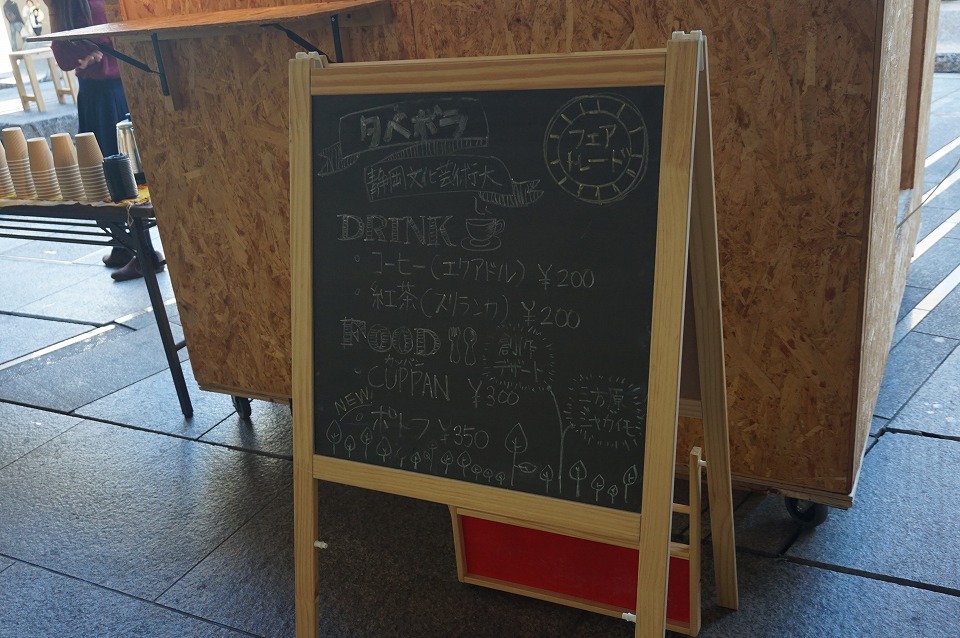 タベボラ
フェア
トレード
静岡文化芸術大
DRINK
・コーヒー(エクアドル) ¥200
・紅茶(スリランカ) ¥200
FOOD
創作
デザート
カッパン
・CUPPAN ¥300
NEW
・ポトフ ¥350
三方原
ジャガイモ